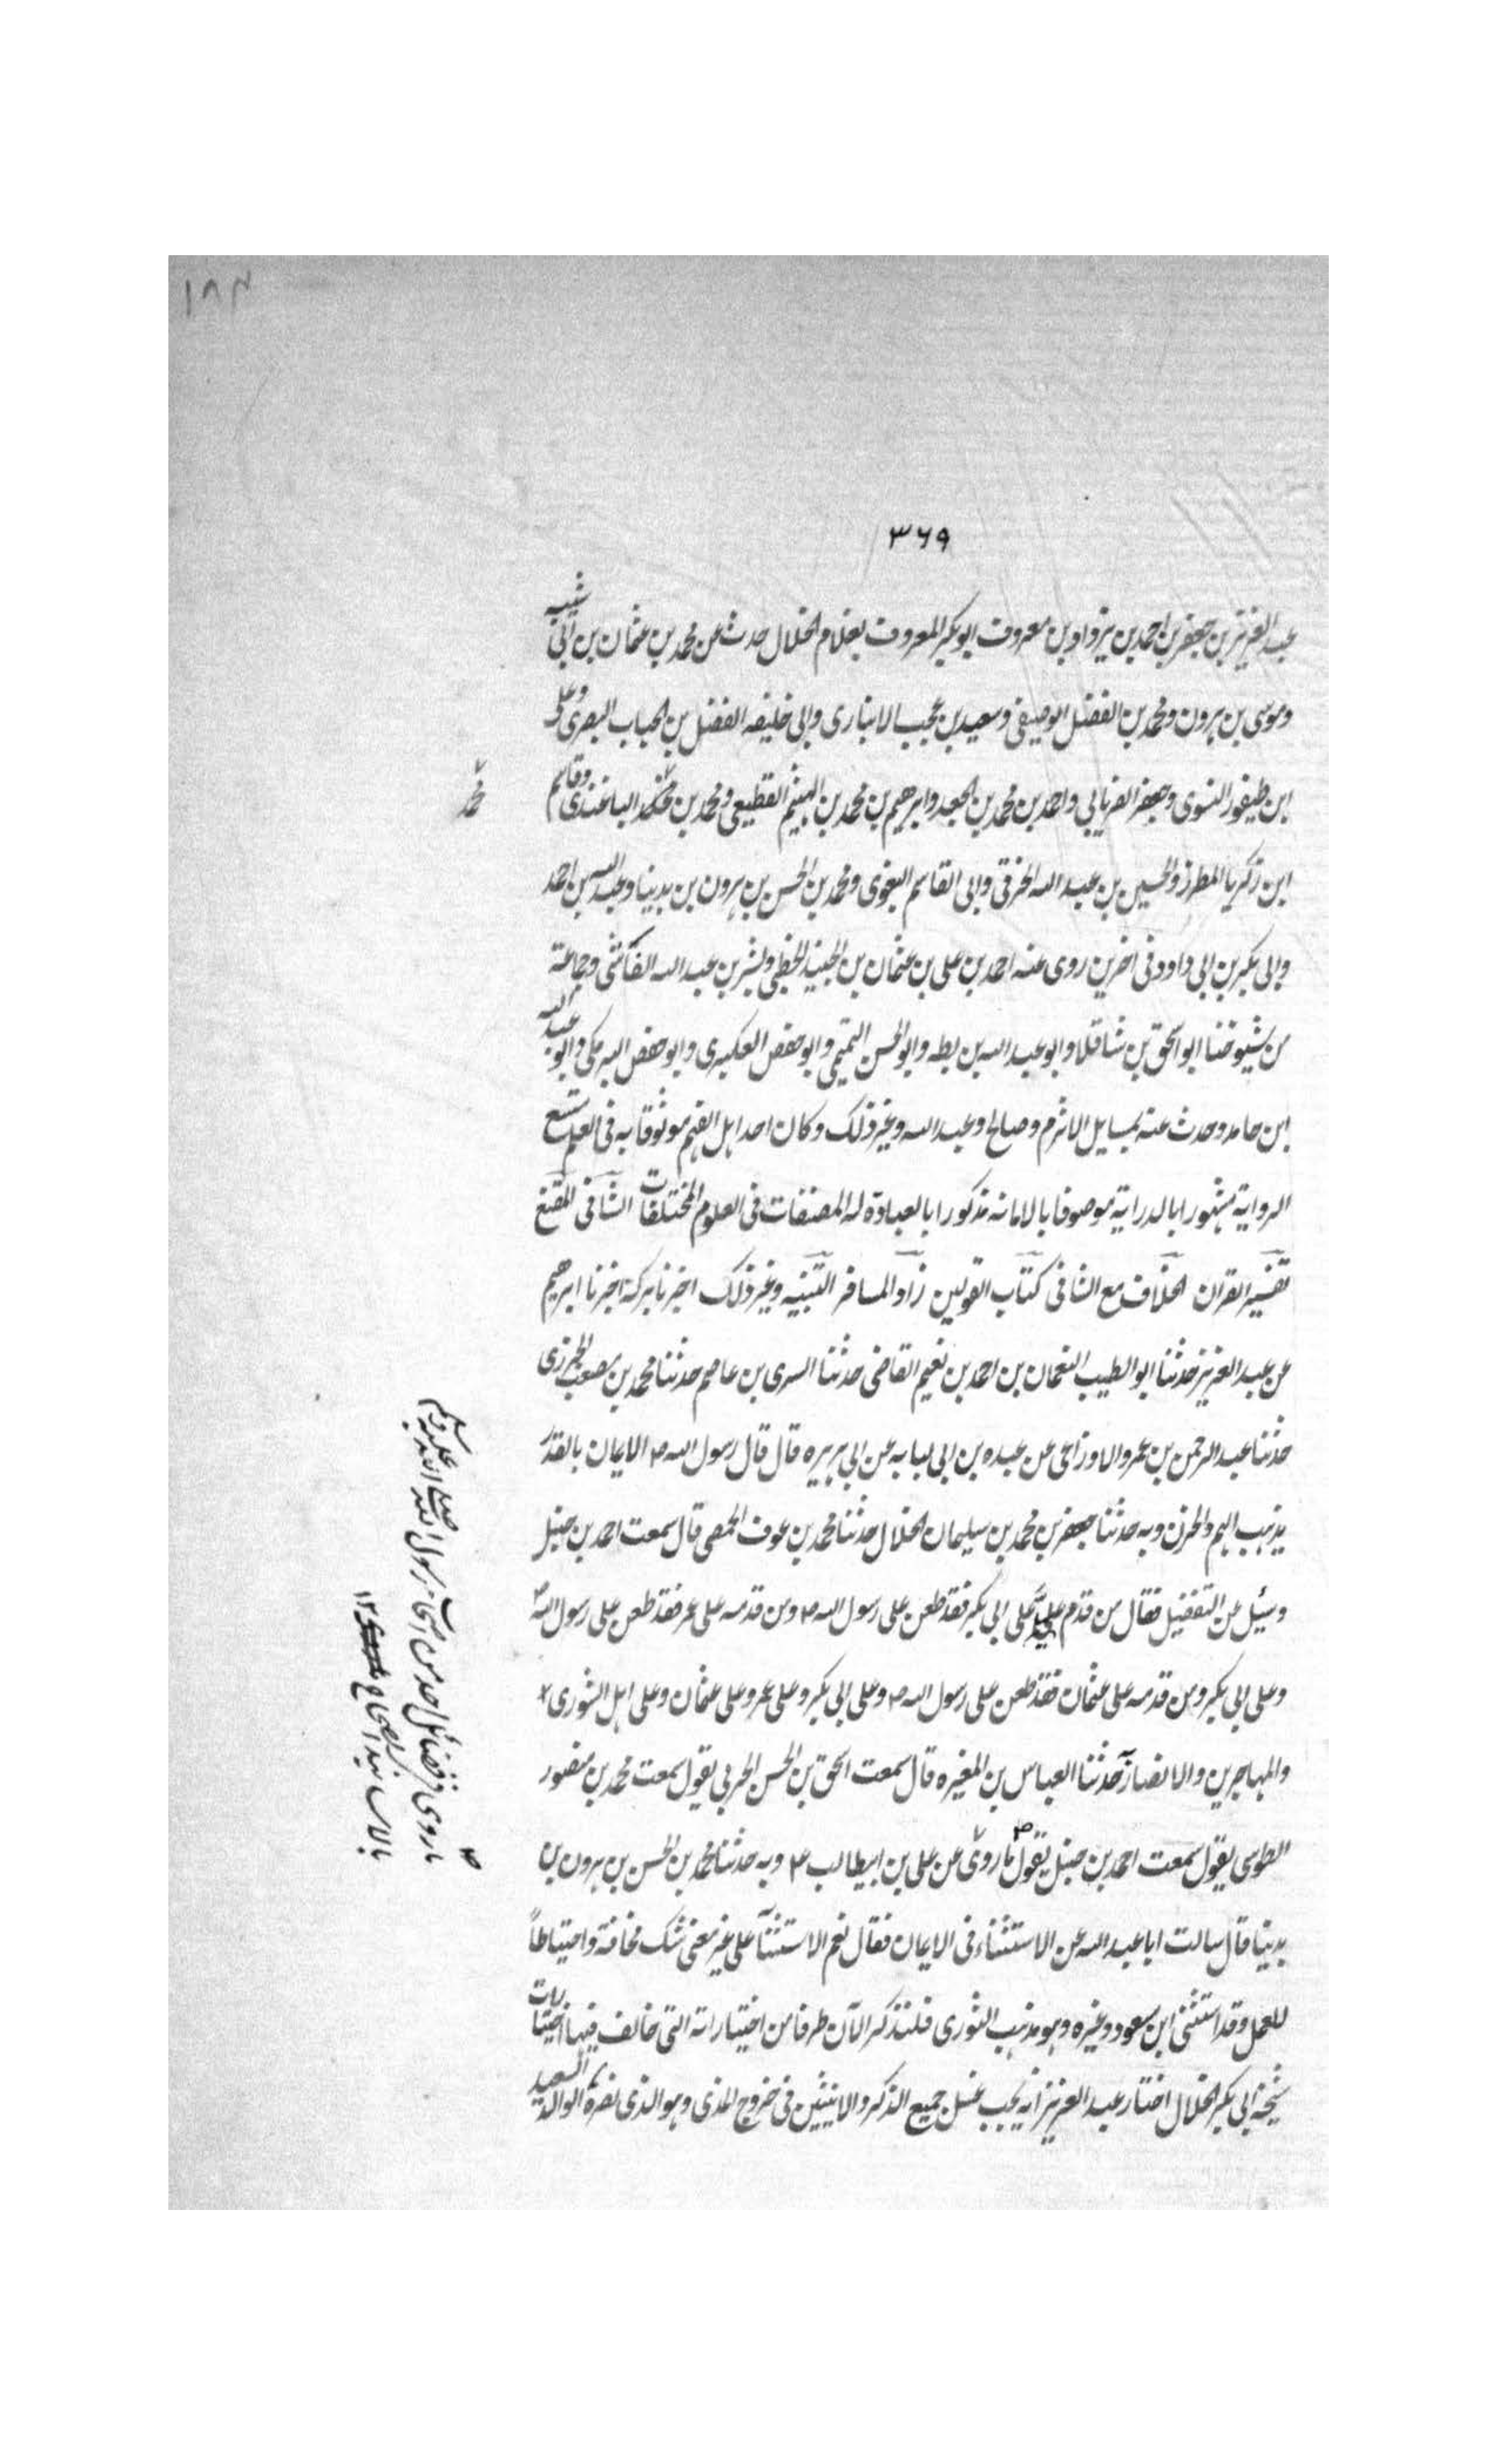 ١٨٣
٣٦٩
عبد العزيز بن جعفر بن احمد بن يزداد بن معروف ابو بكر المعروف بغلام الخلال حدث عن محمد بن عثمان بن ابي شيبه
وموسى بن هرون ومحمد بن الفضل الوصيفي وسعيد بن عجب الانبارى وابى خليفه الفضل بن الحباب البصرى وعلى
ابن طيفور النسوى وجعفر الفريابي واحمد بن محمد بن الجعد وابرهيم بن محمد بن الهيثم القطيعي ومحمد بن محمد الباغندى وقاسم
محمد
ابن زكريا المطرز والحسين بن عبد الله الخرقي وابى القاسم البغوى ومحمد بن الحسن بن هرون بن بدينا وعبد الله بن احمد
وابى بكر بن ابى داود فى اخرين روى عنه احمد بن على بن عثمان بن الجنيد الخطبي وبشر بن عبد الله الفاتنى وجماعة
من شيوخنا ابو اسحق بن شاقلا وابو عبد الله بن بطه وابو الحسن التميمى وابو حفص العكبرى وابو حفص البرمكى وابو عبد الله
ابن حامد وحدث عنه بمسايل الاثرم وصالح وعبد الله وغير ذلك وكان احد اهل الفهم موثوقا به فى العلم متسع
الرواية مشهورا بالدراية موصوفا بالامانه مذكورا بالعبادة له المصنفات فى العلوم المختلفات الشافى المقنع
تفسير القران الخلاف مع الشافى كتاب القولين زاد المسافر التنبيه وغير ذلك اخبرنا بركة اخبرنا ابرهيم
عن عبد العزيز حدثنا ابو الطيب النعمان بن احمد بن نعيم القاضى حدثنا السرى بن عاصم حدثنا محمد بن مصعب الجزرى
حدثنا عبد الرحمن بن عمرو الاوزاعى عن عبده بن ابى لبابه عن ابى هريره قال قال رسول الله ص الايمان بالقدر
يذهب الهم والحزن وبه حدثنا جعفر بن محمد بن سليمان الخلال حدثنا محمد بن عوف الحمصى قال سمعت احمد بن حنبل
وسئل عن التفضيل فقال من قدم عليا على ابى بكر فقد طعن على رسول الله ص ومن قدمه على عمر فقد طعن على رسول الله ص
وعلى ابى بكر ومن قدمه على عثمان فقد طعن على رسول الله ص وعلى ابى بكر وعلى عمر وعلى عثمان وعلى اهل الشورى
والمهاجرين والانصار حدثنا العباس بن المغيره قال سمعت اسحق بن الحسن الحربى يقول سمعت محمد بن منصور
الطوسى يقول سمعت احمد بن حنبل يقول ما روى عن على بن ابيطالب ع وبه حدثنا محمد بن الحسن بن هرون بن
بدينا قال سالت ابا عبد الله عن الاستثناء فى الايمان فقال نعم الاستثنآ على غير معنى شك مخافة واحتياطاً
للعمل وقد استثنى ابن مسعود وغيره وهو مذهب الثورى فلنذكر الآن طرفا من اختياراته التى خالف فيها اختيارات
شيخه ابى بكر الخلال اختار عبد العزيز انه يجب غسل جميع الذكر والانثيين فى خروج المذى وهو الذى نصره الوالد السعيد
ص
ما روى فى فضائل احد من اصحاب رسول الله صلى الله عليه وسلم
بالاسانيد الصحاح ١٢